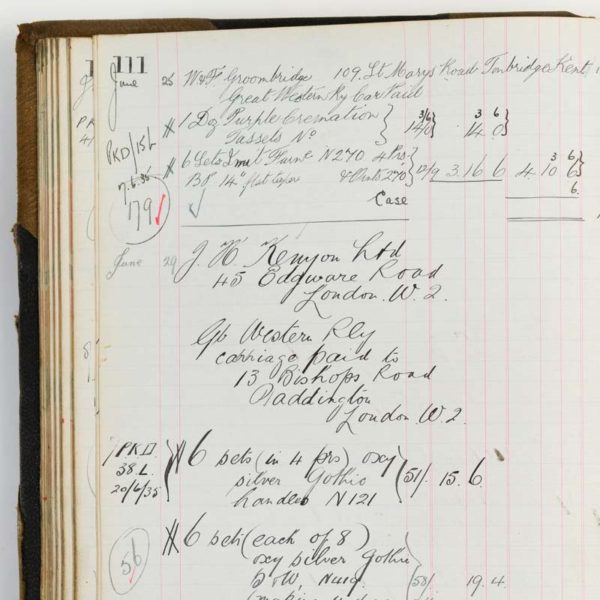 111
June 25 W & F. Groombridge 109. St Marys Road Tonbridge Kent
Great Western Ry Car Paid
1 Dz Purple Cremation 14/0 3/6 14 0 3 6
Tassels No
PKD/15L
6 Sets Imit Furne N270 4 Prs 12/9 3.16 6 4. 10 6 3 6
14" flat tapers & Points 270
6.
17.6.35
Case
79
June 29 J. H. Kenyon Ltd
45 Edgware Road
London. W. 2.
Gt Western Rly
carriage paid to
13 Bishops Road
Paddington
London. W. 2.
PKD. 6 sets (in 4 prs) oxy
38 L. silver Gothic 51/. 15. 6.
20/6/35 handles N121
6 sets (each of 8)
56 oxy silver Gothic
N419. 58/ 19.4.